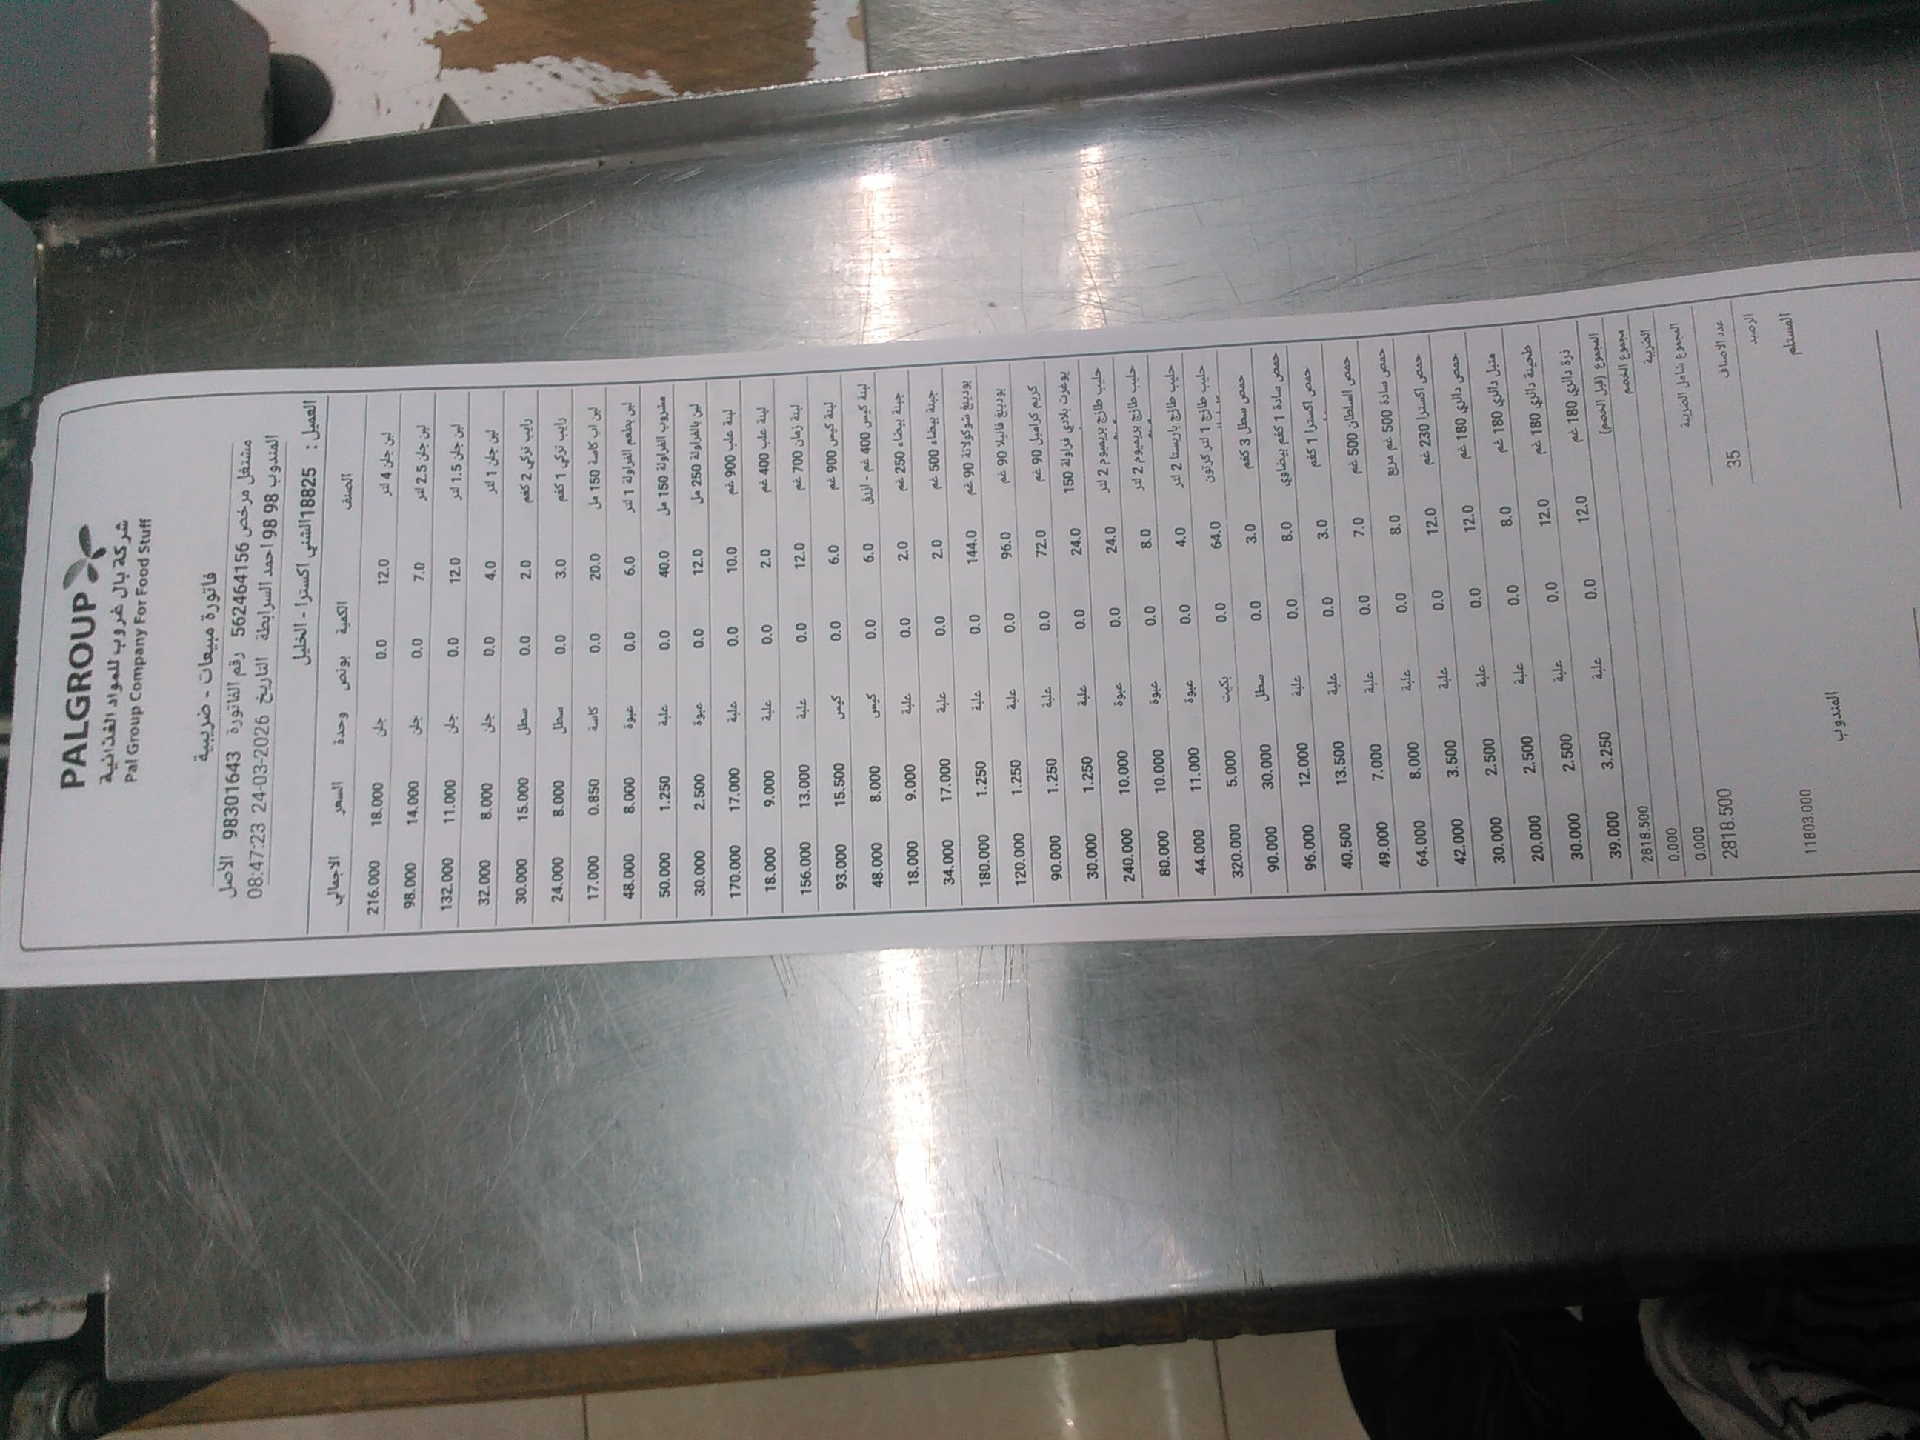 PALGROUP
شركة بال غروب للمواد الغذائية
Pal Group Company For Food Stuff
فاتورة مبيعات - ضريبية
مشتغل مرخص 562464156 رقم الفاتورة 98301643 الاصل
المندوب 98 98 احمد السرابطة التاريخ 24-03-2026 08:47:23
العميل : 18825 الشني اكسترا - الخليل
الصنف الكمية بونص وحدة السعر الاجمالي
لبن جلن 4 لتر 12.0 0.0 جلن 18.000 216.000
لبن جلن 2.5 لتر 7.0 0.0 جلن 14.000 98.000
لبن جلن 1.5 لتر 12.0 0.0 جلن 11.000 132.000
لبن جلن 1 لتر 4.0 0.0 جلن 8.000 32.000
رايب تركي 2 كغم 2.0 0.0 سطل 15.000 30.000
رايب تركي 1 كغم 3.0 0.0 سطل 8.000 24.000
لبن اب كاسة 150 مل 20.0 0.0 كاسة 0.850 17.000
لبن بطعم الفراولة 1 لتر 6.0 0.0 عبوة 8.000 48.000
مشروب الفراولة 150 مل 40.0 0.0 علبة 1.250 50.000
لبن بالفراولة 250 مل 12.0 0.0 عبوة 2.500 30.000
لبنة علب 900 غم 10.0 0.0 علبة 17.000 170.000
لبنة علب 400 غم 2.0 0.0 علبة 9.000 18.000
لبنة زمان 700 غم 12.0 0.0 علبة 13.000 156.000
لبنة كيس 900 غم 6.0 0.0 كيس 15.500 93.000
لبنة كيس 400 غم - 6.0 0.0 كيس 8.000 48.000
جبنة بيضاء 250 غم 2.0 0.0 علبة 9.000 18.000
جبنة بيضاء 500 غم 2.0 0.0 علبة 17.000 34.000
بودينغ شوكولاتة 90 غم 144.0 0.0 علبة 1.250 180.000
بودينغ فانيلا 90 غم 96.0 0.0 علبة 1.250 120.000
كريم كراميل 90 غم 72.0 0.0 علبة 1.250 90.000
يوغرت بلادي فراولة 150 24.0 0.0 علبة 1.250 30.000
حليب طازج بريميوم 2 لتر 24.0 0.0 عبوة 10.000 240.000
حليب طازج بريميوم 2 لتر 8.0 0.0 عبوة 10.000 80.000
حليب طازج باريستا 2 لتر 4.0 0.0 عبوة 11.000 44.000
حليب طازج 1 لتر كرتون 64.0 0.0 بكيت 5.000 320.000
حمص سطل 3 كغم 3.0 0.0 سطل 30.000 90.000
حمص سادة 1 كغم بيضاوي 8.0 0.0 علبة 12.000 96.000
حمص اكسترا 1 كغم 3.0 0.0 علبة 13.500 40.500
حمص السلطان 500 غم 7.0 0.0 علبة 7.000 49.000
حمص سادة 500 غم مربع 8.0 0.0 علبة 8.000 64.000
حمص اكسترا 230 غم 12.0 0.0 علبة 3.500 42.000
حمص دائري 180 غم 12.0 0.0 علبة 2.500 30.000
متبل دائري 180 غم 8.0 0.0 علبة 2.500 20.000
طحينة دائري 180 غم 12.0 0.0 علبة 2.500 30.000
ذرة دائري 180 غم 12.0 0.0 علبة 3.250 39.000
المجموع (قبل الخصم) 2818.500
مجموع الخصم 0.000
الضريبة 0.000
المجموع شامل الضريبة 2818.500
عدد الاصناف 35
الرصيد 11803.000
المستلم المندوب